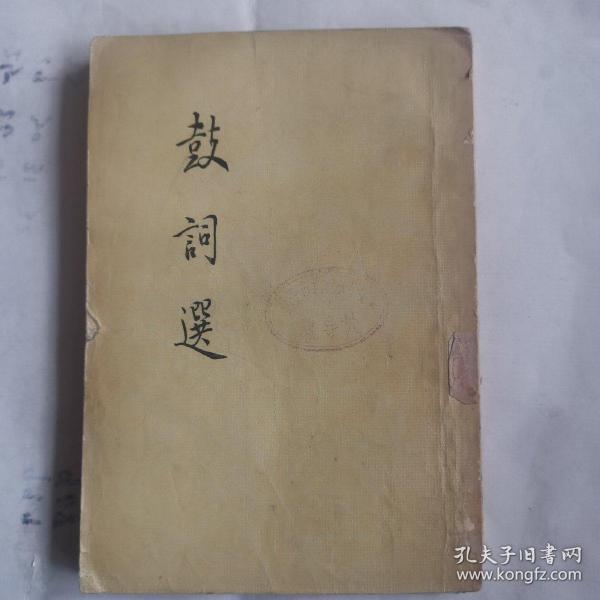 鼓詞選
孔夫子旧書网
www.kongfz.com